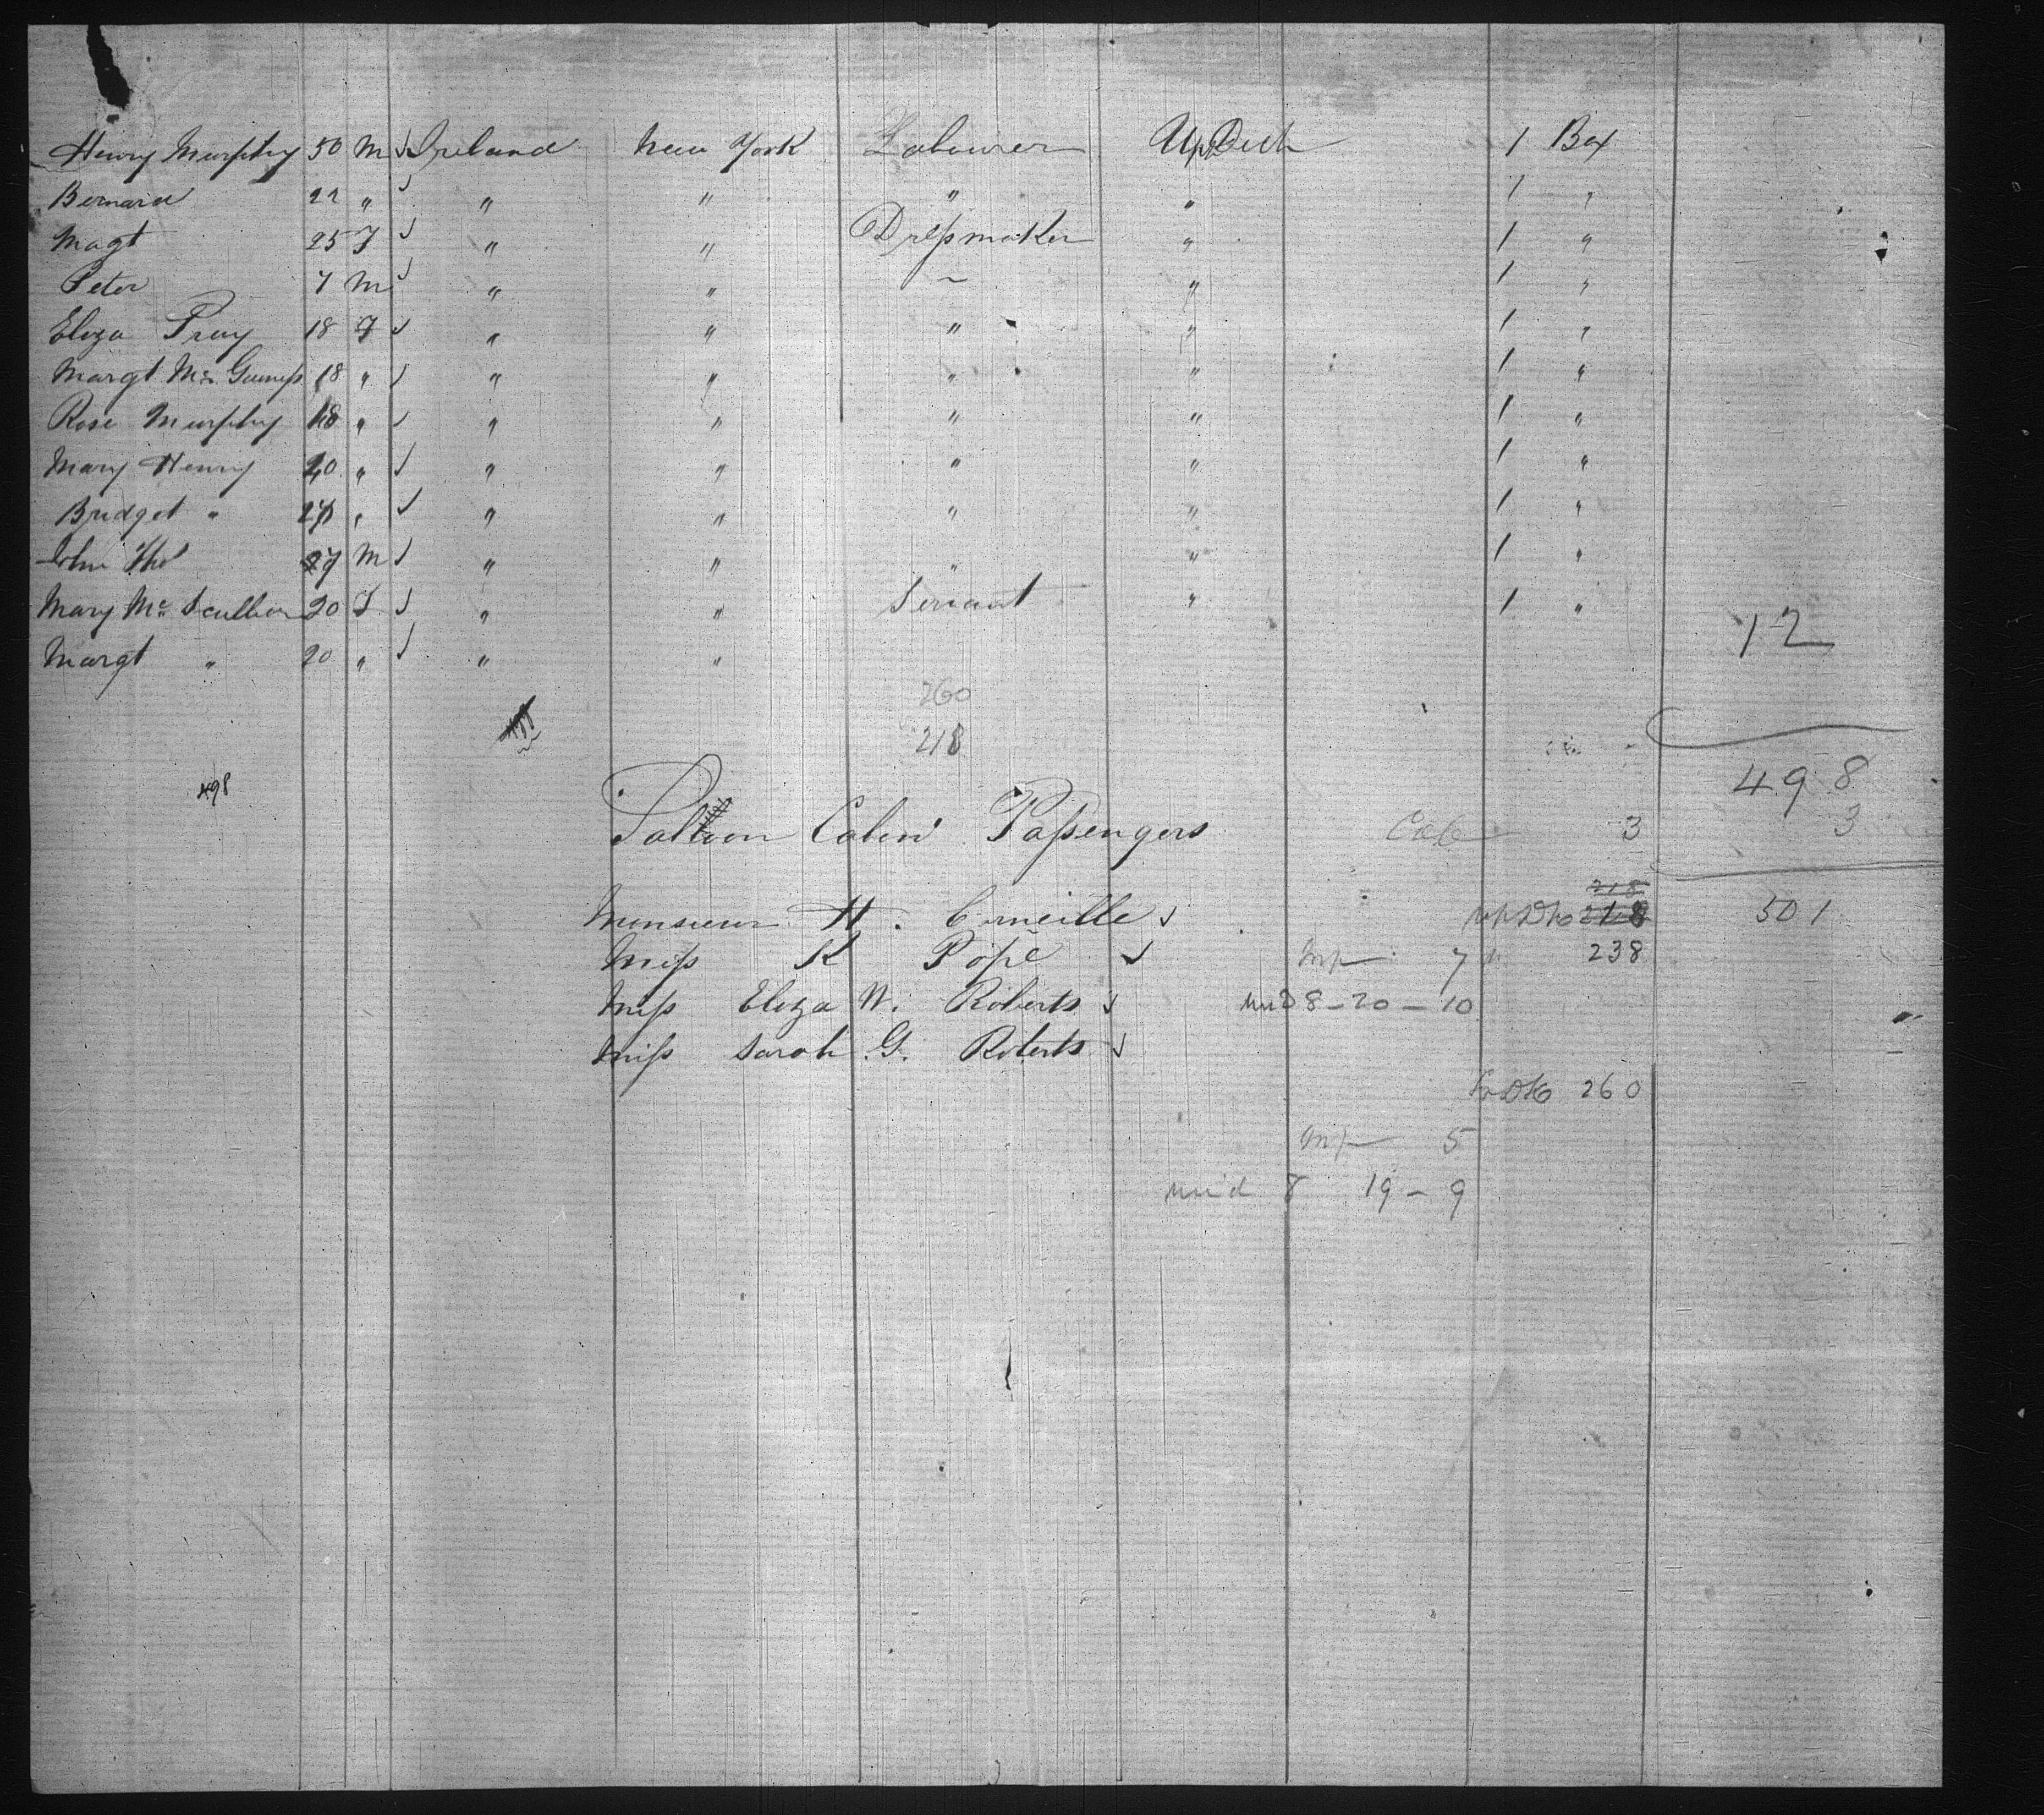 Henry Murphy 50 M Ireland New York Labourer Up Deck 1 Box
Bernard 22 " " " " " 1 "
Magt 25 F " " Dressmaker " 1 "
Peter 7 M " " ~ " 1 "
Eliza Pray 18 F " " " " 1 "
Margt Mc Guiness 18 " " " " " 1 "
Rose Murphy 18 " " " " " 1 "
Mary Henry 20 " " " " " 1 "
Bridget " " " " " " 1 "
John 27 M " " " " 1 "
Mary Mc Scullion 20 F " " Servant " 1 "
Margt " 20 " " "
12
260
218
498
498
Saloon Cabin Passengers Cab 3 3
218
Monsieur H. Corneille Up Dk 218 501
Miss K Pope 7 238
Miss Eliza W. Roberts 8 - 20 - 10
Miss Sarah G. Roberts
Dk 260
5
8 19 - 9